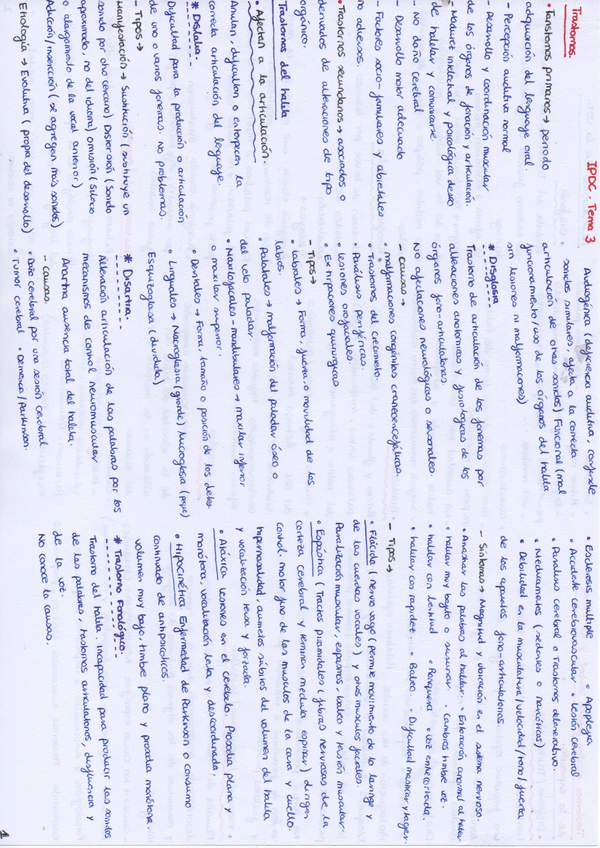 IPDC. Tema 3
Trastornos.
• Trastornos primarios → periodo
adquisición del lenguaje oral.
- Percepción auditiva normal
- Desarrollo y coordinación muscular
de los órganos de fonación y articulación.
- Madurez intelectual y psicológica deseo
de hablar y comunicarse
- No daño cerebral
- Desarrollo motor adecuado
- Factores socio-familiares y ambientales
no adversos.
• Trastornos secundarios → asociados o
derivados de alteraciones de tipo
orgánico.
Trastornos del habla
• Afectan a la articulación.
Anulan, dificultan o entorpecen la
correcta articulación del lenguaje.
* Dislalia.
Dificultad para la producción o articulación
de uno o varios fonemas. no problemas.
- Tipos →
Manifestación → Sustitución (sustituye un
sonido por otro cercano) Distorsión (Sonido
aproximado, no del idioma) Omisión (Silencio
o alargamiento de la vocal anterior.)
Adición/inserción (se agregan más sonidos)
Etiología → Evolutiva (propia del desarrollo)
Audiógena (deficiencia auditiva, confunde
sonidos similares, afecta a la correcta
articulación de otros sonidos) Funcional (mal
funcionamiento/uso de los órganos del habla
sin lesiones ni malformaciones)
* Disglosia
Trastorno de articulación de los fonemas por
alteraciones anatómicas y fisiológicas de los
órganos fono-articulatorios
No afectaciones neurológicas o sensoriales.
- Causas →
• malformaciones congénitas craneoencefálicas.
• Trastornos del crecimiento.
• Parálisis periféricas
• Lesiones orofaciales
• Extirpaciones quirúrgicas
- Tipos →
• Labiales → Forma, fuerza o movilidad de los
labios.
• Palatales → malformación del paladar óseo o
del velo palatar.
• Maxilofaciales-mandibulares → maxilar inferior
o maxilar superior.
• Dentales → Forma, tamaño o posición de los dientes
• Linguales → Macroglosia (grande) Microglosia (peque)
Esquitoglosia (dividida)
* Disartria.
Alteración articulación de las palabras por los
mecanismos de control neuromuscular
Anartria ausencia total del habla.
- Causas.
• Daño cerebral por una lesión cerebral
• Tumor cerebral • Demencia/Parkinson.
• Esclerosis múltiple • Apoplejía
• Accidente cerebrovascular • Lesión cerebral
• Parálisis cerebral o Trastornos degenerativo.
• Medicamentos (sedantes o narcóticos)
• Debilidad en la musculatura/velocidad/tono/fuerza
de los aparatos fono-articulatorios
- Síntomas → Magnitud y ubicación en el sistema nervioso.
• Arrastrar las palabras al hablar. • Entonación anormal al hablar
• hablar muy bajito o susurrar. • Cambios timbre voz.
• hablar con lentitud • Ronquera • Voz entrecortada.
• hablar con rapidez. • Babeo. • Dificultad masticar y tragar.
- Tipos →
• Flácida (Nervio vago (permite movimiento de la laringe y
de las cuerdas vocales) y otros músculos faciales
Paralización muscular, espasmos, babeo y tensión muscular.
• Espástica (Tractos piramidales (fibras nerviosas de la
corteza cerebral y terminan médula espinal) dirigen
control motor fino de los músculos de la cara y cuello.
hipernasalidad, aumentos súbitos del volumen del habla
y vocalización tensa y forzada.
• Atáxica Lesiones en el cerebelo. Prosodia plana y
monótona, vocalización lenta y descoordinada.
• Hipocinética Enfermedad de Parkinson o consumo
continuado de antipsicóticos
volumen muy bajo, timbre plano y prosodia monótona.
* Trastorno Fonológico.
Trastorno del habla. incapacidad para producir los sonidos
de las palabras, trastornos articulatorios, disfluencia y
de la voz.
No conoce la causas.
1